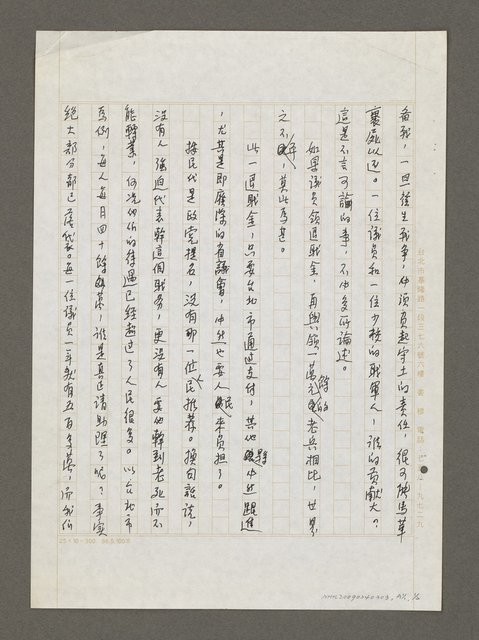 備戰,一旦發生戰爭,他須負起守土的責任,很可能馬革
裹屍以還。一位議員和一位少校的職業軍人,誰的貢獻大?
這是不言可論的事,不必多所論述。
如果議員領退職金,再與只領一萬元餘的老兵相比,世界
之不平,莫此為甚。
此一退職金,只要台北市通過支付,其他縣也必跟進
,尤其是即廢除的省議會,必然也要人民來負擔了。
按民代是政黨提名,沒有那一位人民推荐。換句話說,
沒有人強迫代表幹這個職務,更沒有人要他幹到老死而不
能轉業,何況他們的待遇已經超過了人民很多。以台北市
為例,每人每月四十餘萬,誰是真正請助理了呢?事實
絕大部分都已落袋。每一位議員一年就有五百多萬,而我們
台北市基隆路一段三七六號六樓
電話
25×10=300